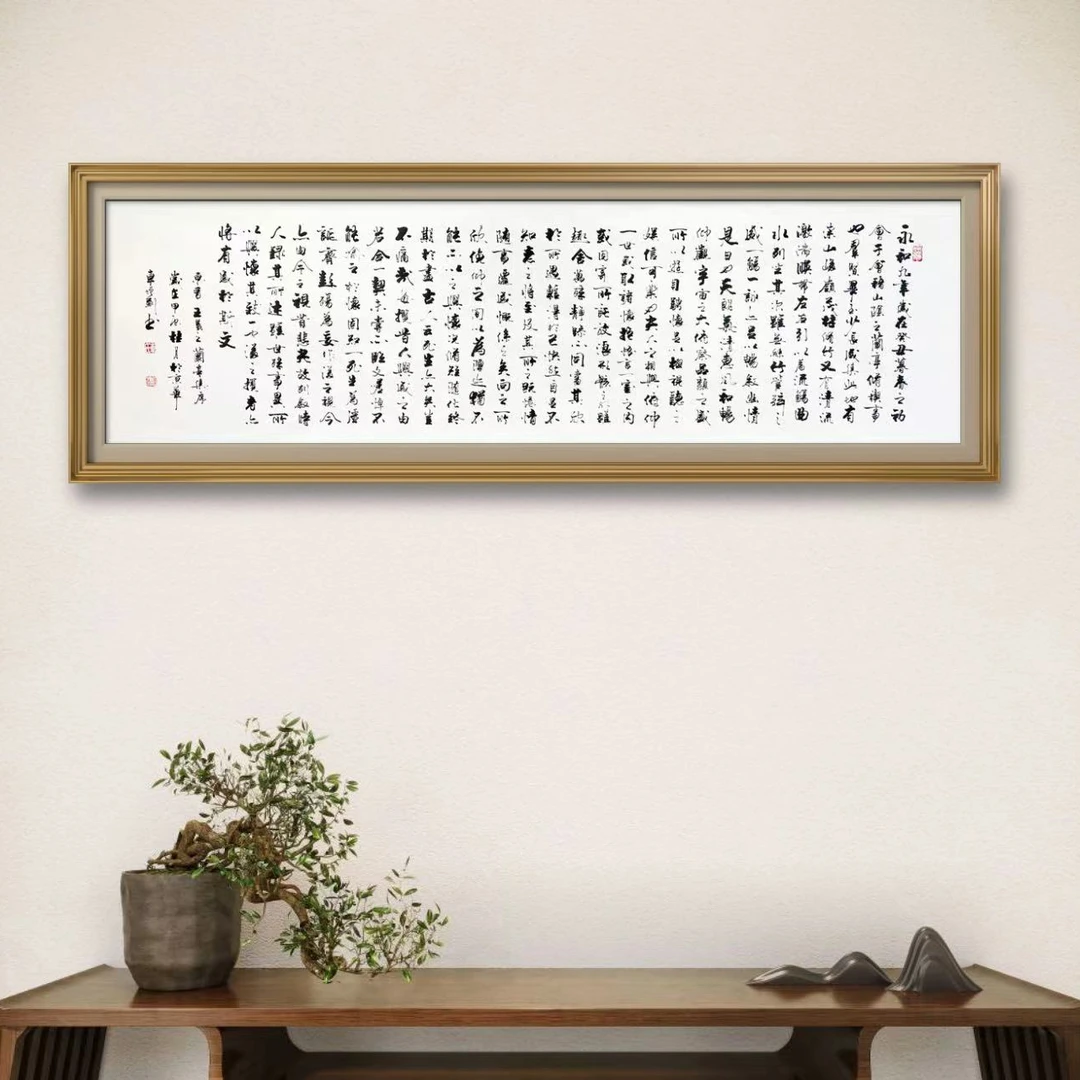 永和九年歲在癸丑暮春之初
會于會稽山陰之蘭亭脩禊事
也羣賢畢至少長咸集此地有
崇山峻嶺茂林脩竹又有清流
激湍暎帶左右引以為流觴曲
水列坐其次雖無絲竹管弦之
盛一觴一詠亦足以暢敘幽情
是日也天朗氣清惠風和暢
仰觀宇宙之大俯察品類之盛
所以遊目騁懷足以極視聽之
娛信可樂也夫人之相與俯仰
一世或取諸懷抱悟言一室之內
或因寄所託放浪形骸之外雖
趣舍萬殊靜躁不同當其欣
於所遇暫得於己快然自足不
知老之將至及其所之既惓情
隨事遷感慨係之矣向之所
欣俛仰之間以為陳迹猶不
能不以之興懷況脩短隨化終
期於盡古人云死生亦大矣豈
不痛哉每攬昔人興感之由
若合一契未嘗不臨文嗟悼不
能喻之於懷固知一死生為虛
誕齊彭殤為妄作後之視今
亦由今之視昔悲夫故列敘時
人錄其所述雖世殊事異所
以興懷其致一也後之攬者亦
將有感於斯文
王羲之蘭亭集序
歲在甲辰桂月於京華
書